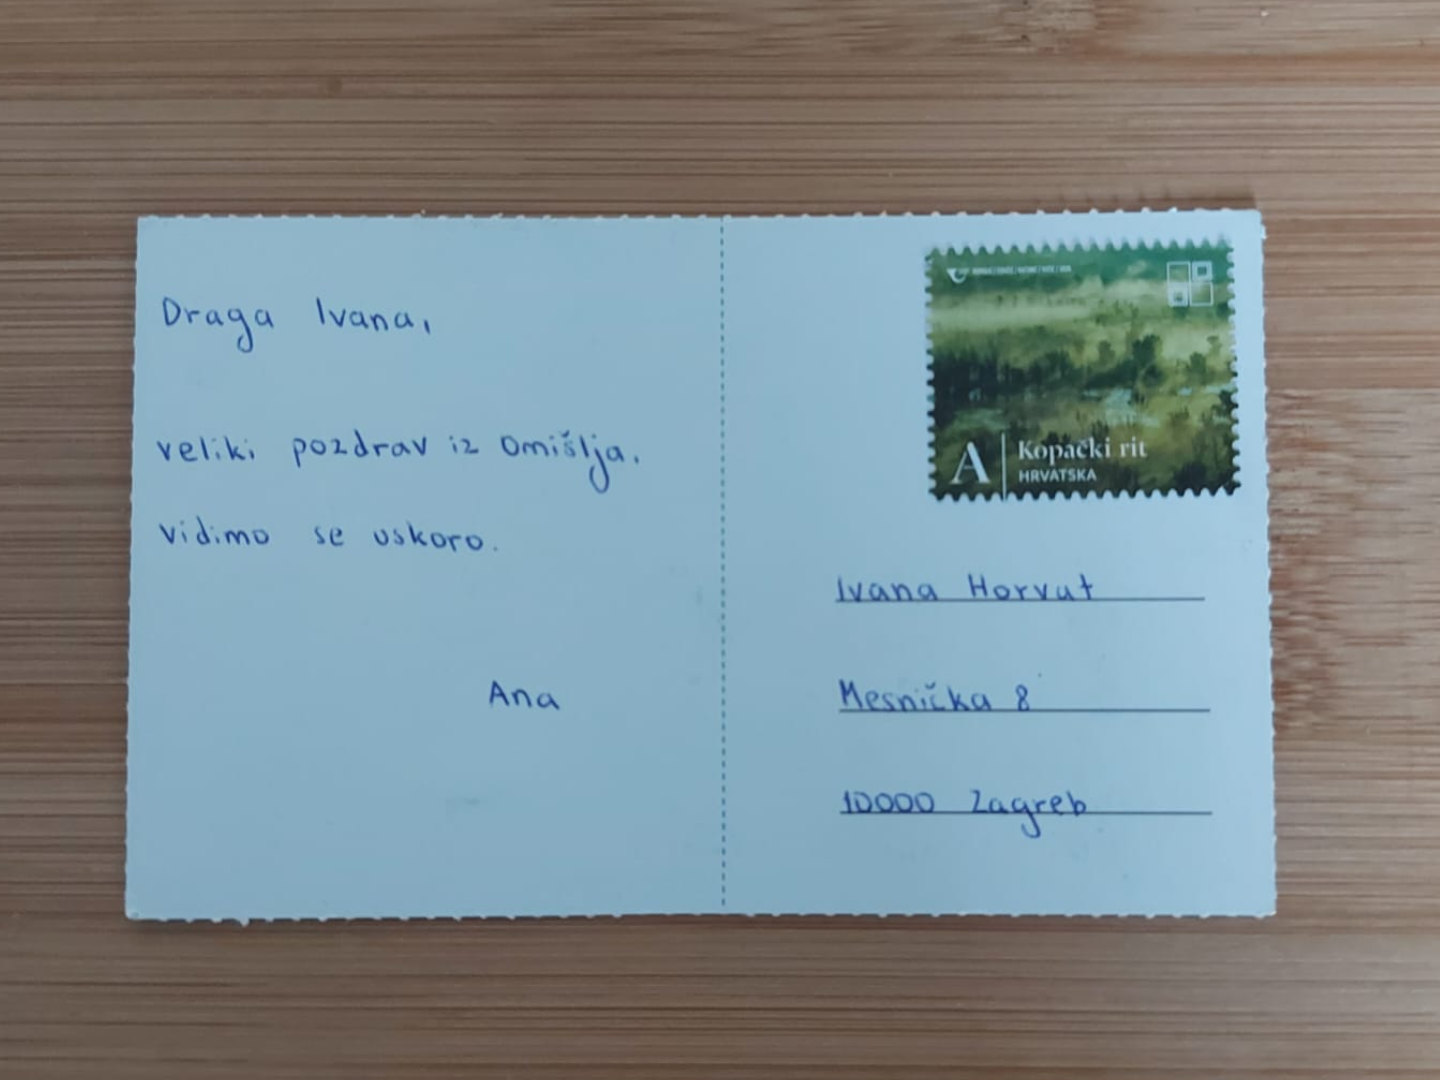 Draga Ivana,
veliki pozdrav iz Omišlja.
Vidimo se uskoro.
Ana
A
Kopački rit
HRVATSKA
Ivana Horvat
Mesnička 8
10000 Zagreb